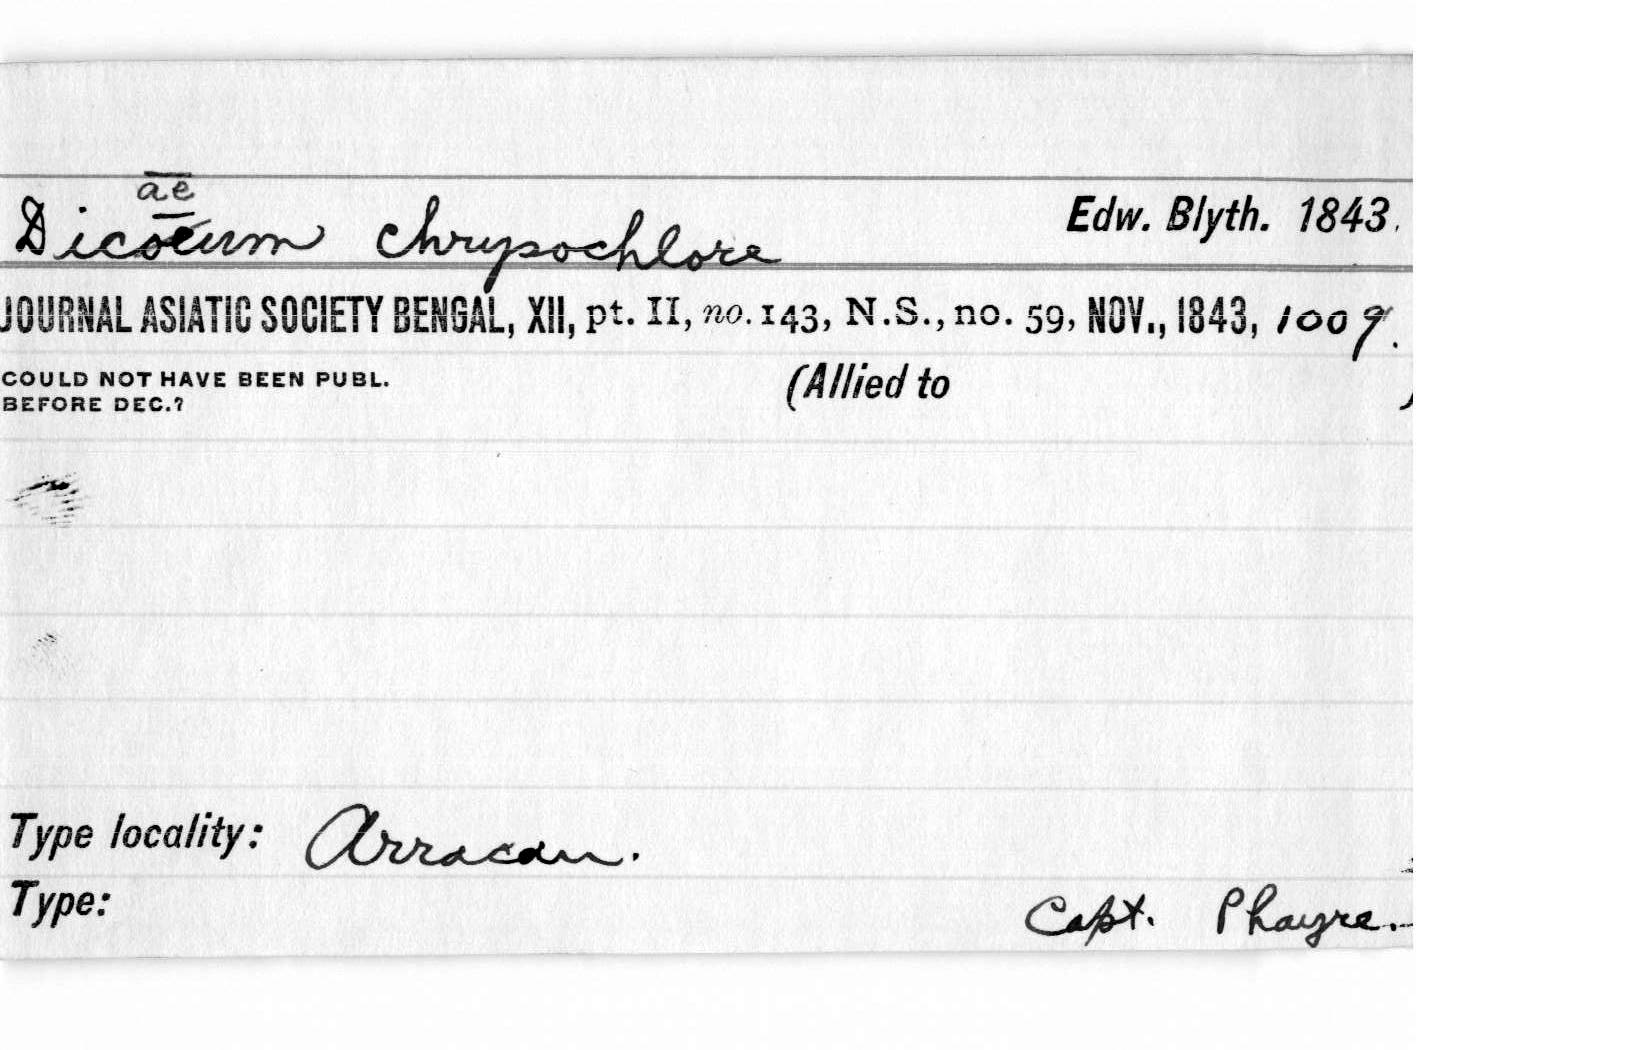 ae
Dicoeum chrysochlore Edw. Blyth. 1843.
JOURNAL ASIATIC SOCIETY BENGAL, XII, pt. II, no. 143, N.S., no. 59, NOV., 1843, 1009.
COULD NOT HAVE BEEN PUBL. (Allied to )
BEFORE DEC.?
Type locality: Arracan.
Type: Capt. Phayre.